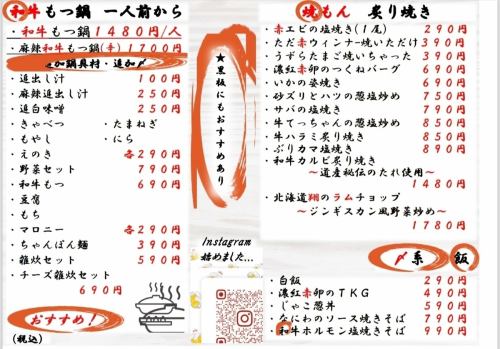 和牛もつ鍋 一人前から
・和牛もつ鍋 1480円/人
・麻辣和牛もつ鍋(辛) 1700円
追加鍋具材・追加〆
・追出し汁 100円
・麻辣追出し汁 250円
・追白味噌 250円
・きゃべつ ・たまねぎ
・もやし ・にら
・えのき 各290円
・野菜セット 790円
・和牛もつ 690円
・豆腐
・もち
・マロニー 各290円
・ちゃんぽん麺 390円
・雑炊セット 590円
・チーズ雑炊セット
690円
おすすめ!
(税込)
★黒板にもおすすめあり
Instagram
始めました...
焼もん 炙り焼き
・赤エビの塩焼き(1尾) 290円
・ただ赤ウィンナー焼いただけ 390円
・うずらたまご焼いちゃった 390円
・濃紅赤卵のつくねバーグ 690円
・いかの姿焼き 690円
・砂ズリとハツの葱塩炒め 750円
・サバの塩焼き 790円
・牛てっちゃんの葱塩炒め 850円
・牛ハラミ炙り焼き 850円
・ぶりカマ塩焼き 890円
・和牛カルビ炙り焼き
～道産秘伝のたれ使用～
1480円
・北海道翔のラムチョップ
～ジンギスカン風野菜炒め～
1780円
〆系 飯
・白飯 290円
・濃紅赤卵のTKG 490円
・じゃこ葱丼 590円
・なにわのソース焼きそば 790円
・和牛ホルモン塩焼きそば 990円